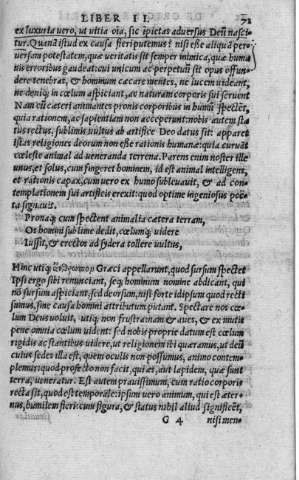 LIBER II. 72
ex luxuria vero, ut uitia oĩa, sic ĩpietas aduersus Deũ nasci
tur. Quam istud ex causa fieri putemus? nisi esse aliquã per
uersam potestatem, quæ ueritatis sit semper inimica, quæ huma
nis erroribus gaudeat: cui unicum ac perpetuũ sit opus offun
dere tenebras, & hominum cæcare mentes, ne lucem uideant,
ne deniq; in cœlum aspiciant, ac naturam corporis sui seruent
Nam cũ cæteri animantes pronis corporibus in humũ spectẽt,
quia rationem, ac sapientiam non acceperunt: nobis autem sta
tus rectus, sublimis uultus ab artifice Deo datus sit: apparet
istas religiones deorum non esse rationis humanæ: quia curuãt
cœleste animal ad ueneranda terrena. Parens enim noster ille
unus, et solus, cum fingeret hominem, id est animal intelligens,
et rationis capax, cum uero ex humo subleuauit, & ad con
templationem sui artificis erexit: quod optime ingeniosus poe
ta signauit.
Pronaq; cum spectent animalia cætera terram,
Os homini sublime dedit, cœlumq; uidere
Iussit, & erectos ad sydera tollere uultus,
Hinc utiq; ἄνθρωπον Græci appellarunt, quod sursum spectet
Ipsi ergo sibi renunciant, seq; hominum nomine abdicant, qui
nõ sursum aspiciant, sed deorsum, nisi forte idipsum quod recti
sumus, sine causa homini attributum putant. Spectare nos cœ
lum Deus uoluit, utiq; non frustra nam & aues, & ex mutis
pene omnia cœlum uidẽt: sed nobis proprie datum est cœlum
rigidis ac stantibus uidere, ut religionem ibi quæramus, ut deũ
cuius sedes illa est, quem oculis non possumus, animo contem
plemur: quod profecto non facit, qui æs, aut lapidem, quæ sunt
terra, ueneratur. Est autem prauissimum, cum ratio corporis
recta sit, quod est temporale: ipsum uero animum, qui est æter
nus, humilem fieri: cum figura, & status nihil aliud significẽt,
G 4 nisi men=